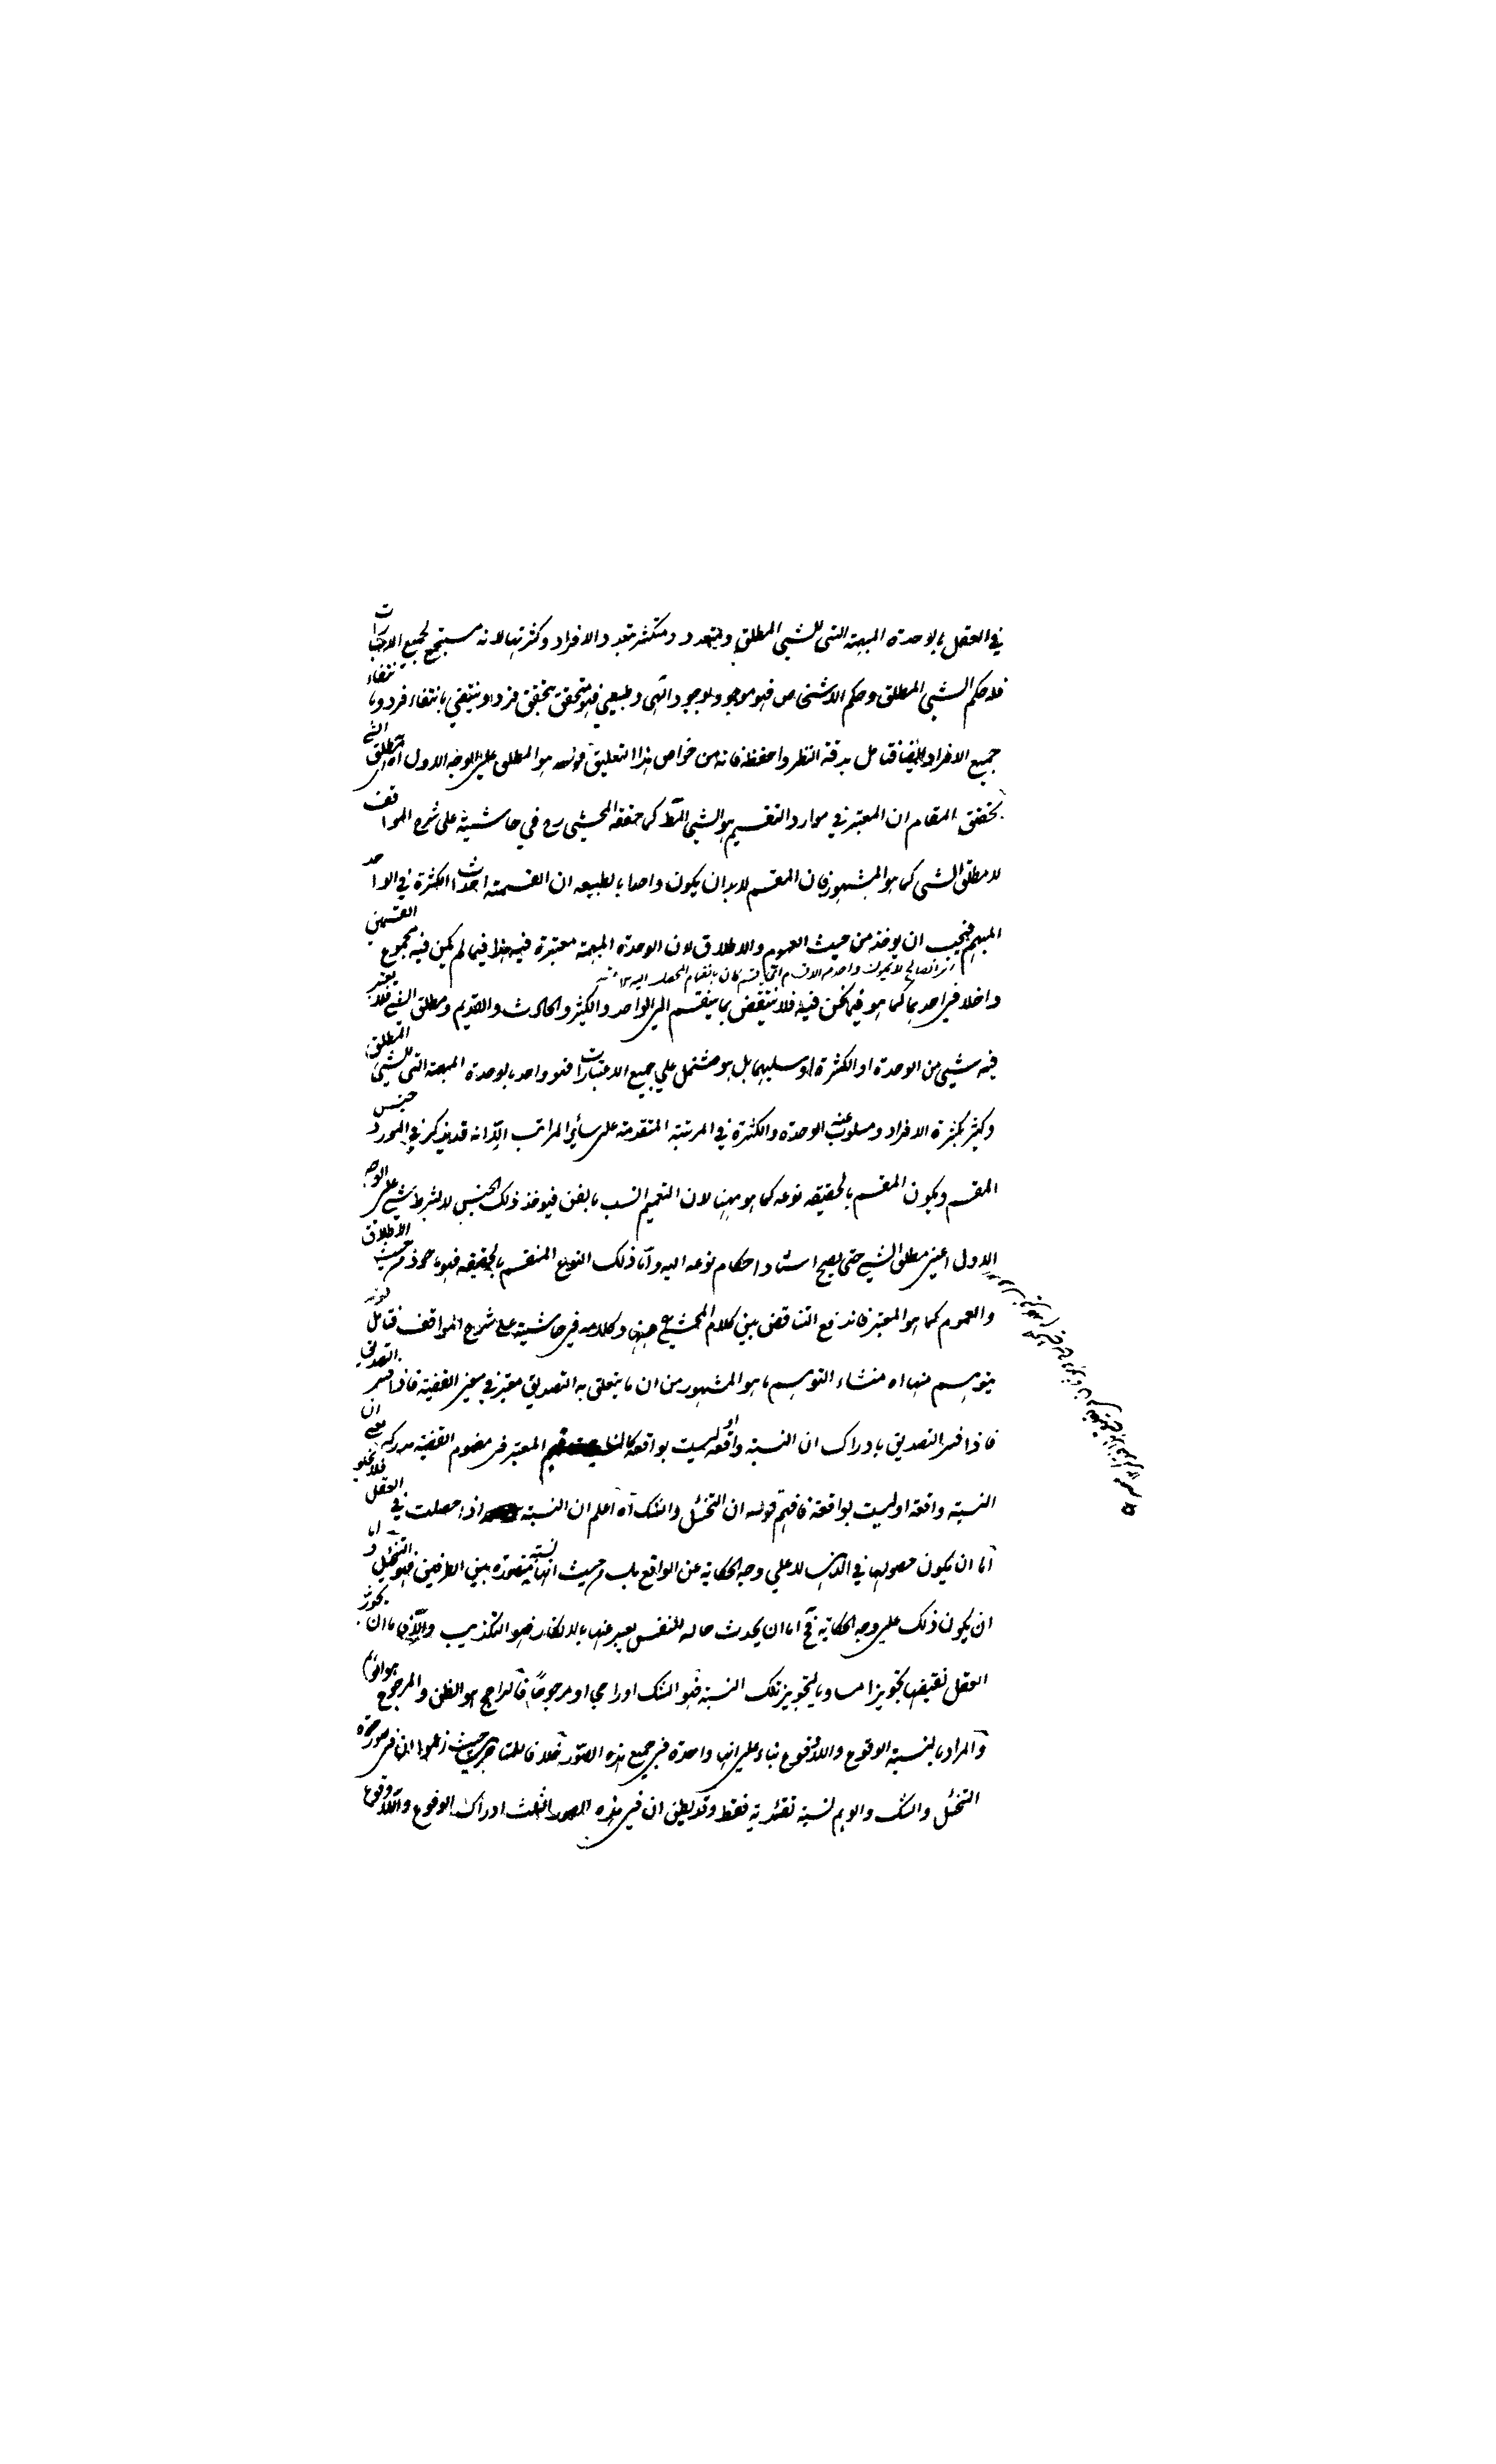 في العقل بالوحدة المبهمة التي للشيء المطلق ويتعدد ويتكثر بتعدد الافراد وكثرتها لانه مستجمع لجميع الاعتبارات
فله حكم الشيء المطلق وحكم الاشخاص فهو موجود بوجود الٰهي وطبيعي فهو متحقق بتحقق فرد او ينتفي بانتفاء فرد وبانتفاء
جميع الافراد ايضا فتامل بدقة النظر واحفظه فانه من خواص هذا التعليق قوله هو المطلق على الوجه الاول اه اي مطلق الشيء
تحقيق المقام ان المعتبر في موارد التقسيم هو الشيء المط كما حققه المحشي رح في حاشيته على شرح المواقف
لا مطلق الشيء كما هو المشهور فان المقسم لابد ان يكون واحدا بالطبيعه ان القسمة احداث الكثرة في الواحد
المبهم فيجب ان يوخذ من حيث العموم والاطلاق لان الوحدة المبهمة معتبرة فيه هذا فيما لم يكن فيه مجموع القسمين
داخلا في احدهما كما هو فيما نحن فيه فلا ينتقض بما ينقسم الى الواحد والكثير والحادث والقديم ومطلق الشيء فلا يعتبر
فيه شيء من الوحدة او الكثرة او سلبهما بل هو مشتمل على جميع الاعتبارات فهو واحد بالوحدة المبهمة التي للشيء المطلق
وكثير بكثرة الافراد ومسلوب عنه الوحدة والكثرة في المرتبة المتقدمة على سائر المراتب الا انه قد يذكر في المورد جنس
المقسم ويكون المقسم بالحقيقه نوعه كما هو ههنا لان التعميم انسب بالفن فيوخذ ذلك الجنس لا بشرط شيء على الوجه
الاول اعني مطلق الشيء حتى يصح اسناد احكام نوعه اليه واما ذلك النوع المنقسم بالحقيقه فهو ماخوذ من حيث الاطلاق
والعموم كما هو المعتبر فاندفع التناقض بين كلام المحشي ههنا وكلامه في حاشيته على شرح المواقف فتامل قوله
يتوهم منها اه منشاء التوهم ما هو المشهور من ان ما يتعلق به التصديق معتبر في معنى القضية فاذا فسر التصديق
فاذا فسر التصديق بادراك ان النسبة واقعه او ليست بواقعه المعتبر في مفهوم القضية مدركه يعني ان
النسبة واقعة او ليست بواقعة فافهم قوله ان التخئيل والشك اه اعلم ان النسبة اذا حصلت في العقل فلا يخلو
اما ان يكون حصولها في الذهن لا على وجه الحكاية عن الواقع بل من حيث انها نسبة متصورة بين الطرفين فهو التخئيل واما
ان يكون ذلك على وجه الحكاية فح اما ان يحدث حاله للنفس يعبر عنها بالانكار فهو التكذيب والا فاما ان يجوز
العقل نقيضها تجويزا مساويا لتجويز تلك النسبة فهو الشك او راجحا او مرجوحا فالراجح هو الظن والمرجوح هو الوهم
والمراد بالنسبة الوقوع واللاوقوع بناء على انها واحدة في جميع هذه الصور خلافا للمتاخرين حيث زعموا ان في صورة
التخئيل والشك والوهم نسبة تقئيدية فقط وقد يظن ان في هذه الصور الثلث ادراك الوقوع واللاوقوع